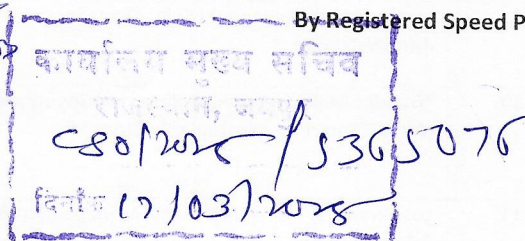 By Registered Speed P
कार्यालय मुख्य सचिव
राजस्थान, जयपुर
CSO/2025/5365076
दिनांक 17/03/2025